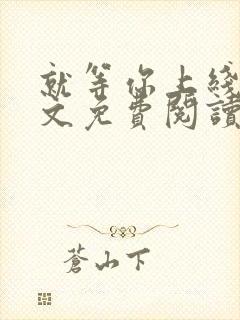 就等你上线
文免费閱讀
蒼山下